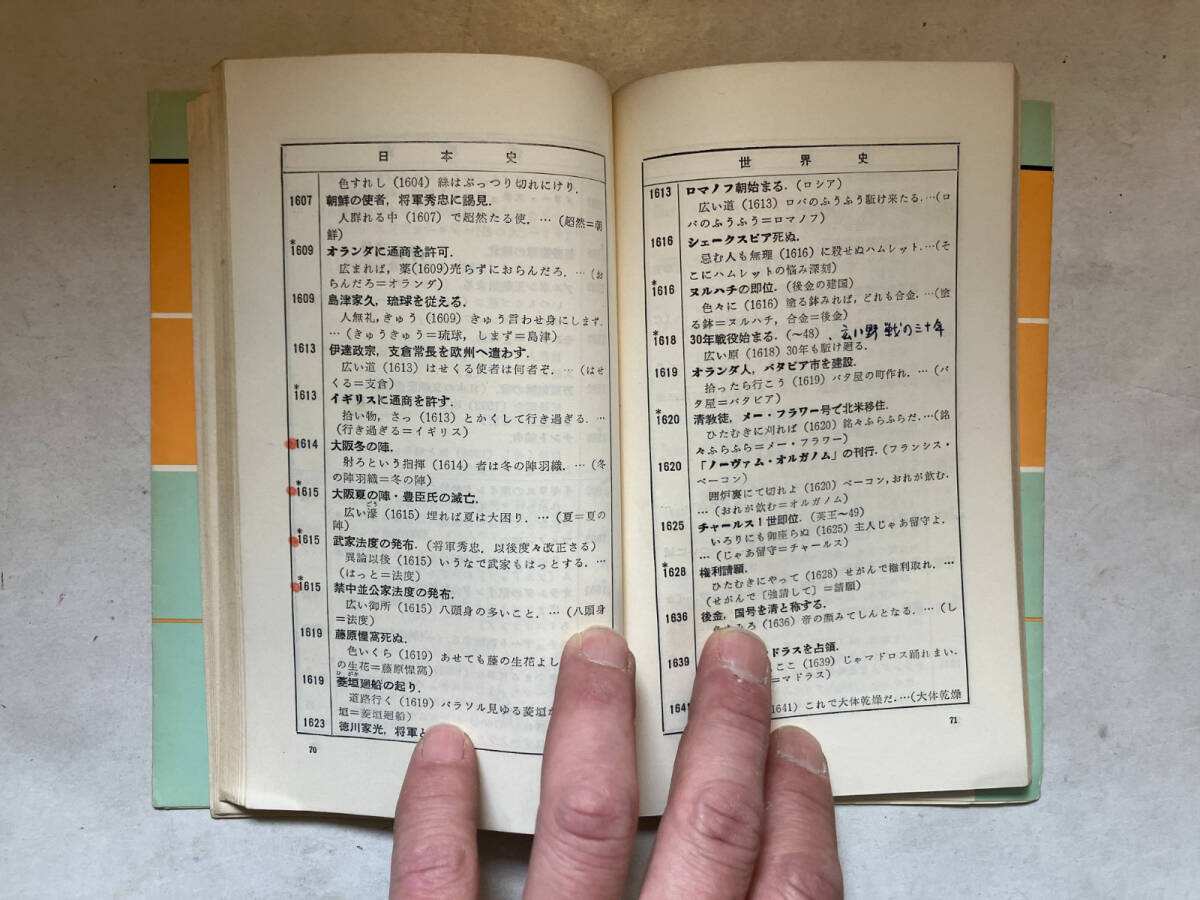 日本史
色すれし (1604) 絲はぷっつり切れにけり.
1607 朝鮮の使者，将軍秀忠に謁見.
人群れる中 (1607) で超然たる使. … (超然=朝
鮮)
*1609 オランダに通商を許可.
広まれば，薬(1609)売らずにおらんだろ. …(お
らんだろ=オランダ)
1609 島津家久，琉球を従える.
人無礼,きゅう (1609) きゅう言わせ身にしまず.
… (きゅうきゅう=琉球，しまず=島津)
1613 伊達政宗，支倉常長を欧州へ遣わす.
広い道 (1613) はせくる使者は何者ぞ. … (はせ
くる=支倉)
*1613 イギリスに通商を許す.
拾い物，さっ (1613) とかくして行き過ぎる. …
(行き過ぎる=イギリス)
1614 大阪冬の陣.
射ろという指揮 (1614) 者は冬の陣羽織. … (冬
の陣羽織=冬の陣)
*1615 大阪夏の陣・豊臣氏の滅亡.
広い濠 (1615) 埋れば夏は大困り. … (夏=夏の
陣)
*1615 武家法度の発布. (将軍秀忠. 以後度々改正さる)
異論以後 (1615) いうなで武家もはっとする. …
(はっと=法度)
*1615 禁中並公家法度の発布.
広い御所 (1615) 八頭身の多いこと. … (八頭身
=法度)
1619 藤原惺窩死ぬ.
色いくら (1619) あせても藤の生花よし
の生花=藤原惺窩)
1619 菱垣廻船の起り.
道路行く (1619) パラソル見ゆる菱垣
垣=菱垣廻船)
1623 徳川家光，将軍
70
世界史
1613 ロマノフ朝始まる. (ロシア)
広い道 (1613) ロバのふうふう駈け来たる. …(ロ
バのふうふう=ロマノフ)
1616 シェークスピア死ぬ.
忌む人も無理 (1616) に殺せぬハムレット. …(そ
こにハムレットの悩み深刻)
*1616 ヌルハチの即位. (後金の建国)
色々に (1616) 塗る鉢みれば，どれも合金. …(塗
る鉢=ヌルハチ，合金=後金)
*1618 30年戦役始まる. (〜48) 、広い野 戦の三十年
広い原 (1618) 30年も駈け廻る.
1619 オランダ人，バタビア市を建設.
拾ったら行こう (1619) バタ屋の町作れ. … (バ
タ屋=バタビア)
*1620 清教徒，メー・フラワー号で北米移住.
ひたむきに刈れば (1620) 銘々ふらふらだ. …(銘
々ふらふら=メー・フラワー)
1620 「ノーヴァム・オルガノム」の刊行. (フランシス・
ベーコン)
囲炉裏にて切れよ (1620) ベーコン，おれが飲む.
… (おれが飲む=オルガノム)
1625 チャールス1世即位. (英王〜49)
いろりにも御座らぬ (1625) 主人じゃあ留守よ.
… (じゃあ留守=チャールス)
*1628 権利請願.
ひたむきにやって (1628) せがんで権利取れ. …
(せがんで〔強請して〕=請願)
1636 後金，国号を清と称する.
(1636) 帝の顔みてしんとなる. … (し
1639 ドラスを占領.
ここ (1639) じゃマドロス踊れまい.
=マドラス)
1641 1641) これで大体乾燥だ. …(大体乾燥
71